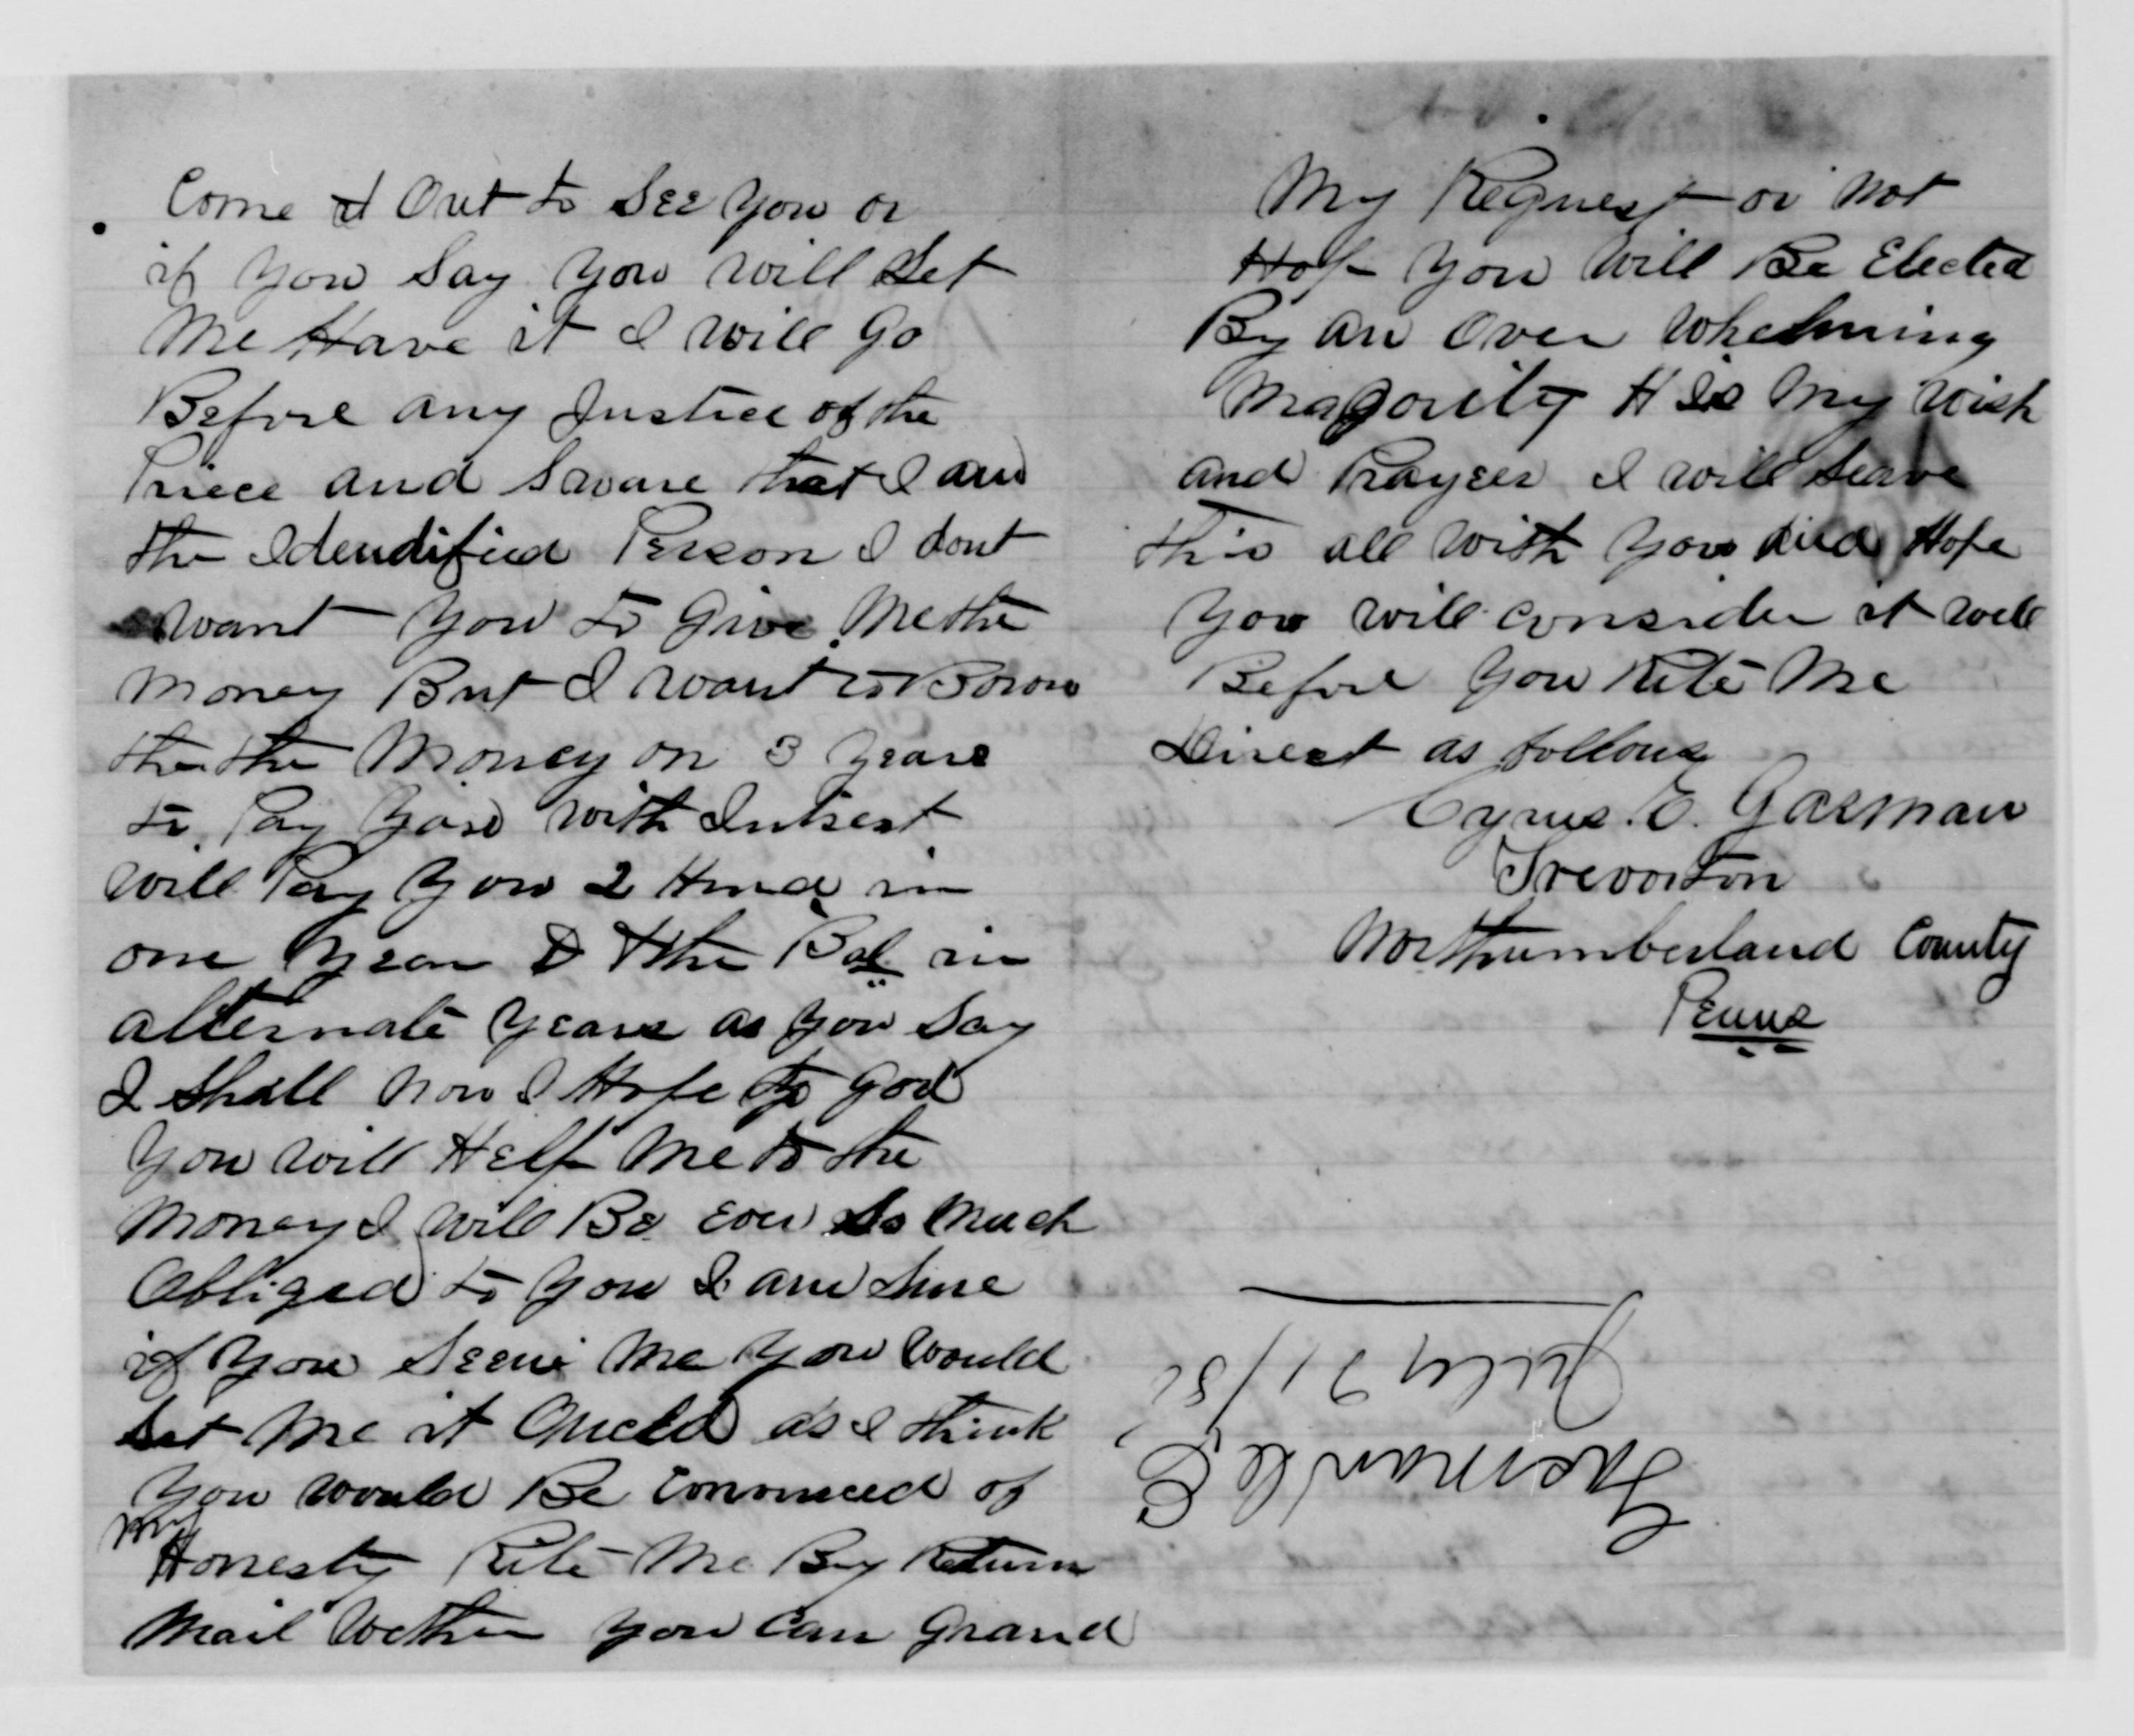 Come Out to See You or
if You Say You Will Let
Me Have it I Will Go
Before any Justice of the
Piece and Sware that I am
the Idendified Person I dont
want You to Give Me the
Money But I want to Borow
the the Money on 3 Years
to Pay You with Intrest
Will Pay You 2 Hund in
one Year & the Bal in
alternate Years as You Say
I Shall now I Hope to God
You Will Help Me to the
Money I Will Be ever So Much
Obliged to You I am Sure
if You Seen Me You Would
Let Me it as I think
You would Be Convinced of
My
Honesty Rite Me By Return
Mail Wether You Can Grand
My Request or Not
Hope You Will Be Elected
By an Over Whelming
Magority It Is My Wish
and Prayer I will Leave
this all With You and Hope
You will consider it well
Before You Rite Me
Direct as follows
Cyrus. E. Garman
Trevorton
Northumberland County
Penna
July 31/8
C E